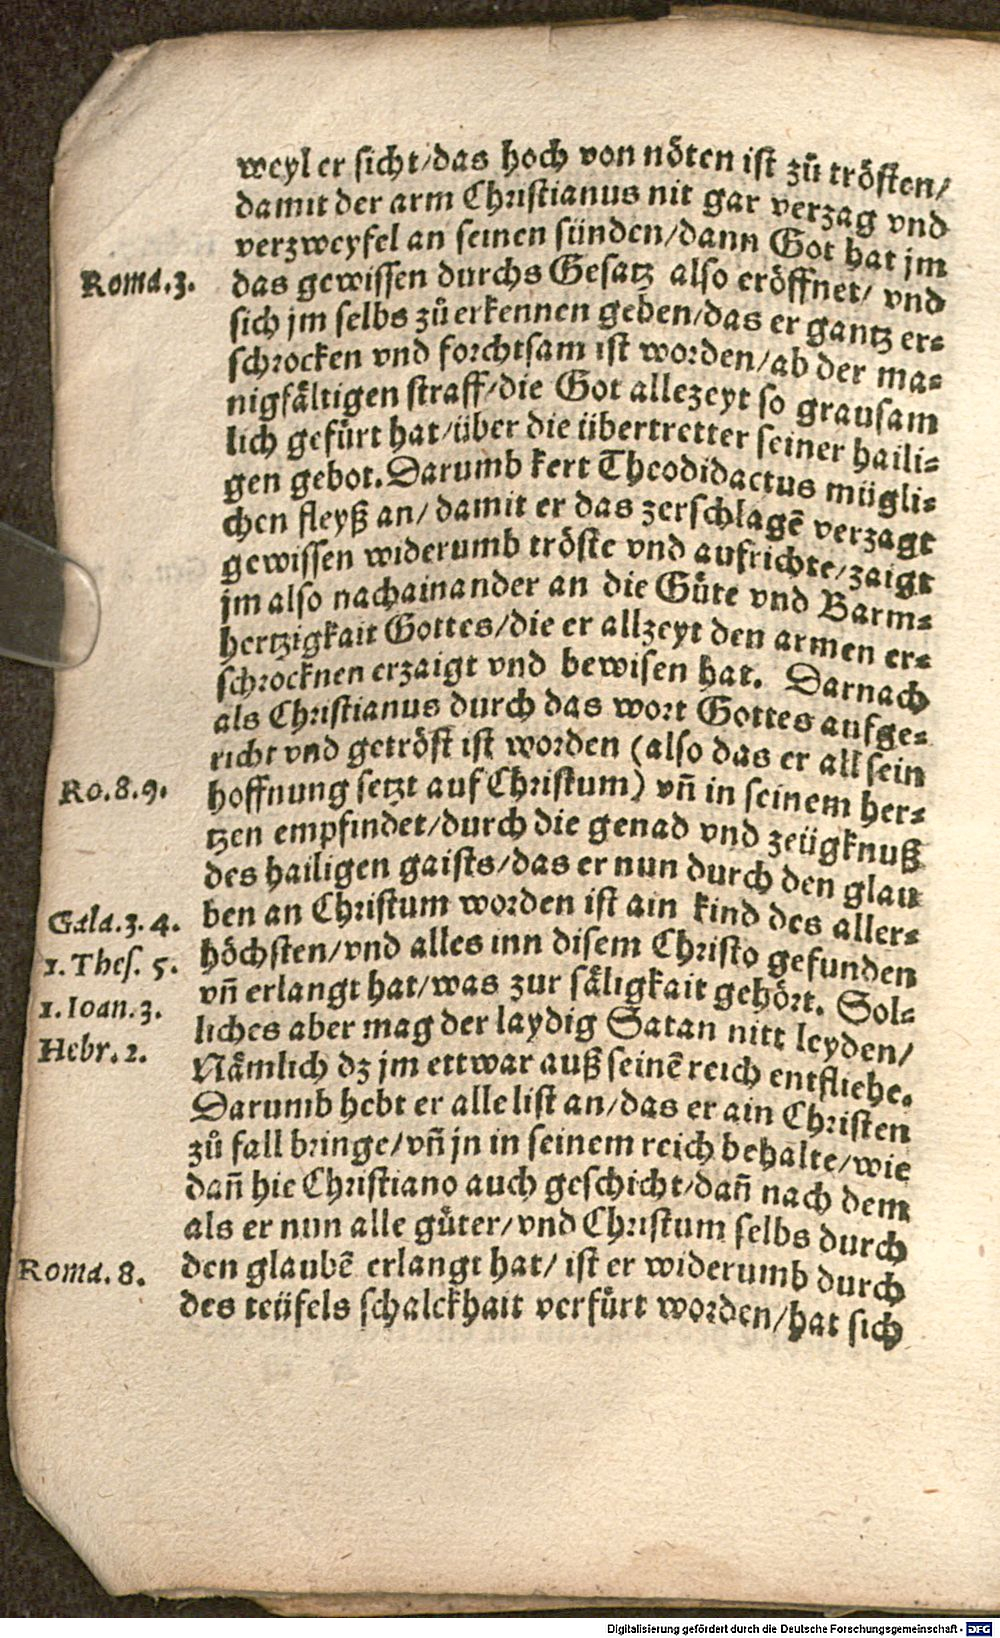 weyl er sicht/das hoch von nöten ist zů trösten/
damit der arm Christianus nit gar verzag vnd
verzweyfel an seinen sünden/dann Got hat jm
Roma.3. das gewissen durchs Gesatz also eröffnet/ vnd
sich jm selbs zů erkennen geben/das er gantz er⸗
schrocken vnd forchtsam ist worden/ab der ma⸗
nigfåltigen straff/die Got allezeyt so grausam
lich gefůrt hat/über die übertretter seiner haili⸗
gen gebot. Darumb kert Theodidactus mügli⸗
chen fleyß an/ damit er das zerschlagē verzagt
gewissen widerumb tröste vnd aufrichte/zaigt
jm also nachainander an die Gůte vnd Barm⸗
hertzigkait Gottes/die er allzeyt den armen er⸗
schrocknen erzaigt vnd bewisen hat. Darnach
als Christianus durch das wort Gottes aufge⸗
richt vnd getröst ist worden (also das er all sein
Ro.8.9. hoffnung setzt auf Christum) vñ in seinem her⸗
tzen empfindet/durch die genad vnd zeügknuß
des hailigen gaists/das er nun durch den glau
Gala.3.4. ben an Christum worden ist ain kind des aller⸗
1.Thes. 5. höchsten/vnd alles inn disem Christo gefunden
1.Ioan.3. vñ erlangt hat/was zur såligkait gehört. Sol⸗
Hebr.2. liches aber mag der laydig Satan nitt leyden/
Nåmlich dz jm ettwar auß seinē reich entfliehe.
Darumb hebt er alle list an/das er ain Christen
zů fall bringe/vñ jn in seinem reich behalte/wie
dañ hie Christiano auch geschicht/dañ nach dem
als er nun alle gůter/vnd Christum selbs durch
Roma. 8. den glaubē erlangt hat/ ist er widerumb durch
des teüfels schalckhait verfůrt worden/hat sich
Digitalisierung gefördert durch die Deutsche Forschungsgemeinschaft - DFG